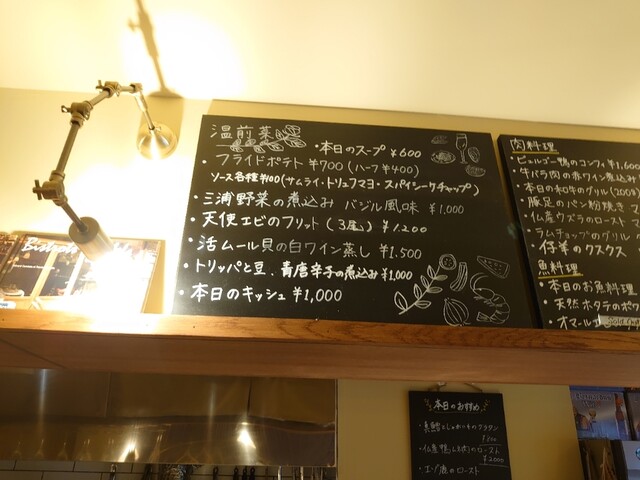 温前菜
・本日のスープ ¥600
・フライドポテト ¥700 (ハーフ ¥400)
ソース各種¥100(サムライ・トリュフマヨ・スパイシーケチャップ)
・三浦野菜の煮込み バジル風味 ¥1,000
・天使エビのフリット (3尾) ¥1200
・活ムール貝の白ワイン蒸し ¥1.500
・トリッパと豆、青唐辛子の煮込み¥1,000
・本日のキッシュ ¥1,000
肉料理
・ビュルゴー鴨のコンフィ ¥1,600
・牛バラ肉の赤ワイン煮込み
・本日の和牛のグリル (200g
・豚足のパン粉焼き
・仏産ウズラのロースト
・ラムチョップのグリル
・仔羊のクスクス
魚料理
・本日のお魚料理
・天然ホタテのポワ
・オマール
本日のおすすめ
・真鱈とじゃがいものグラタン
・仏産鴨ムネ肉のロースト
¥2000
・エゾ鹿のロースト